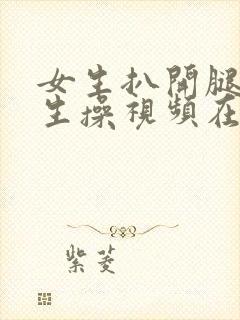 女生扒開腿
生操視頻在
紫菱